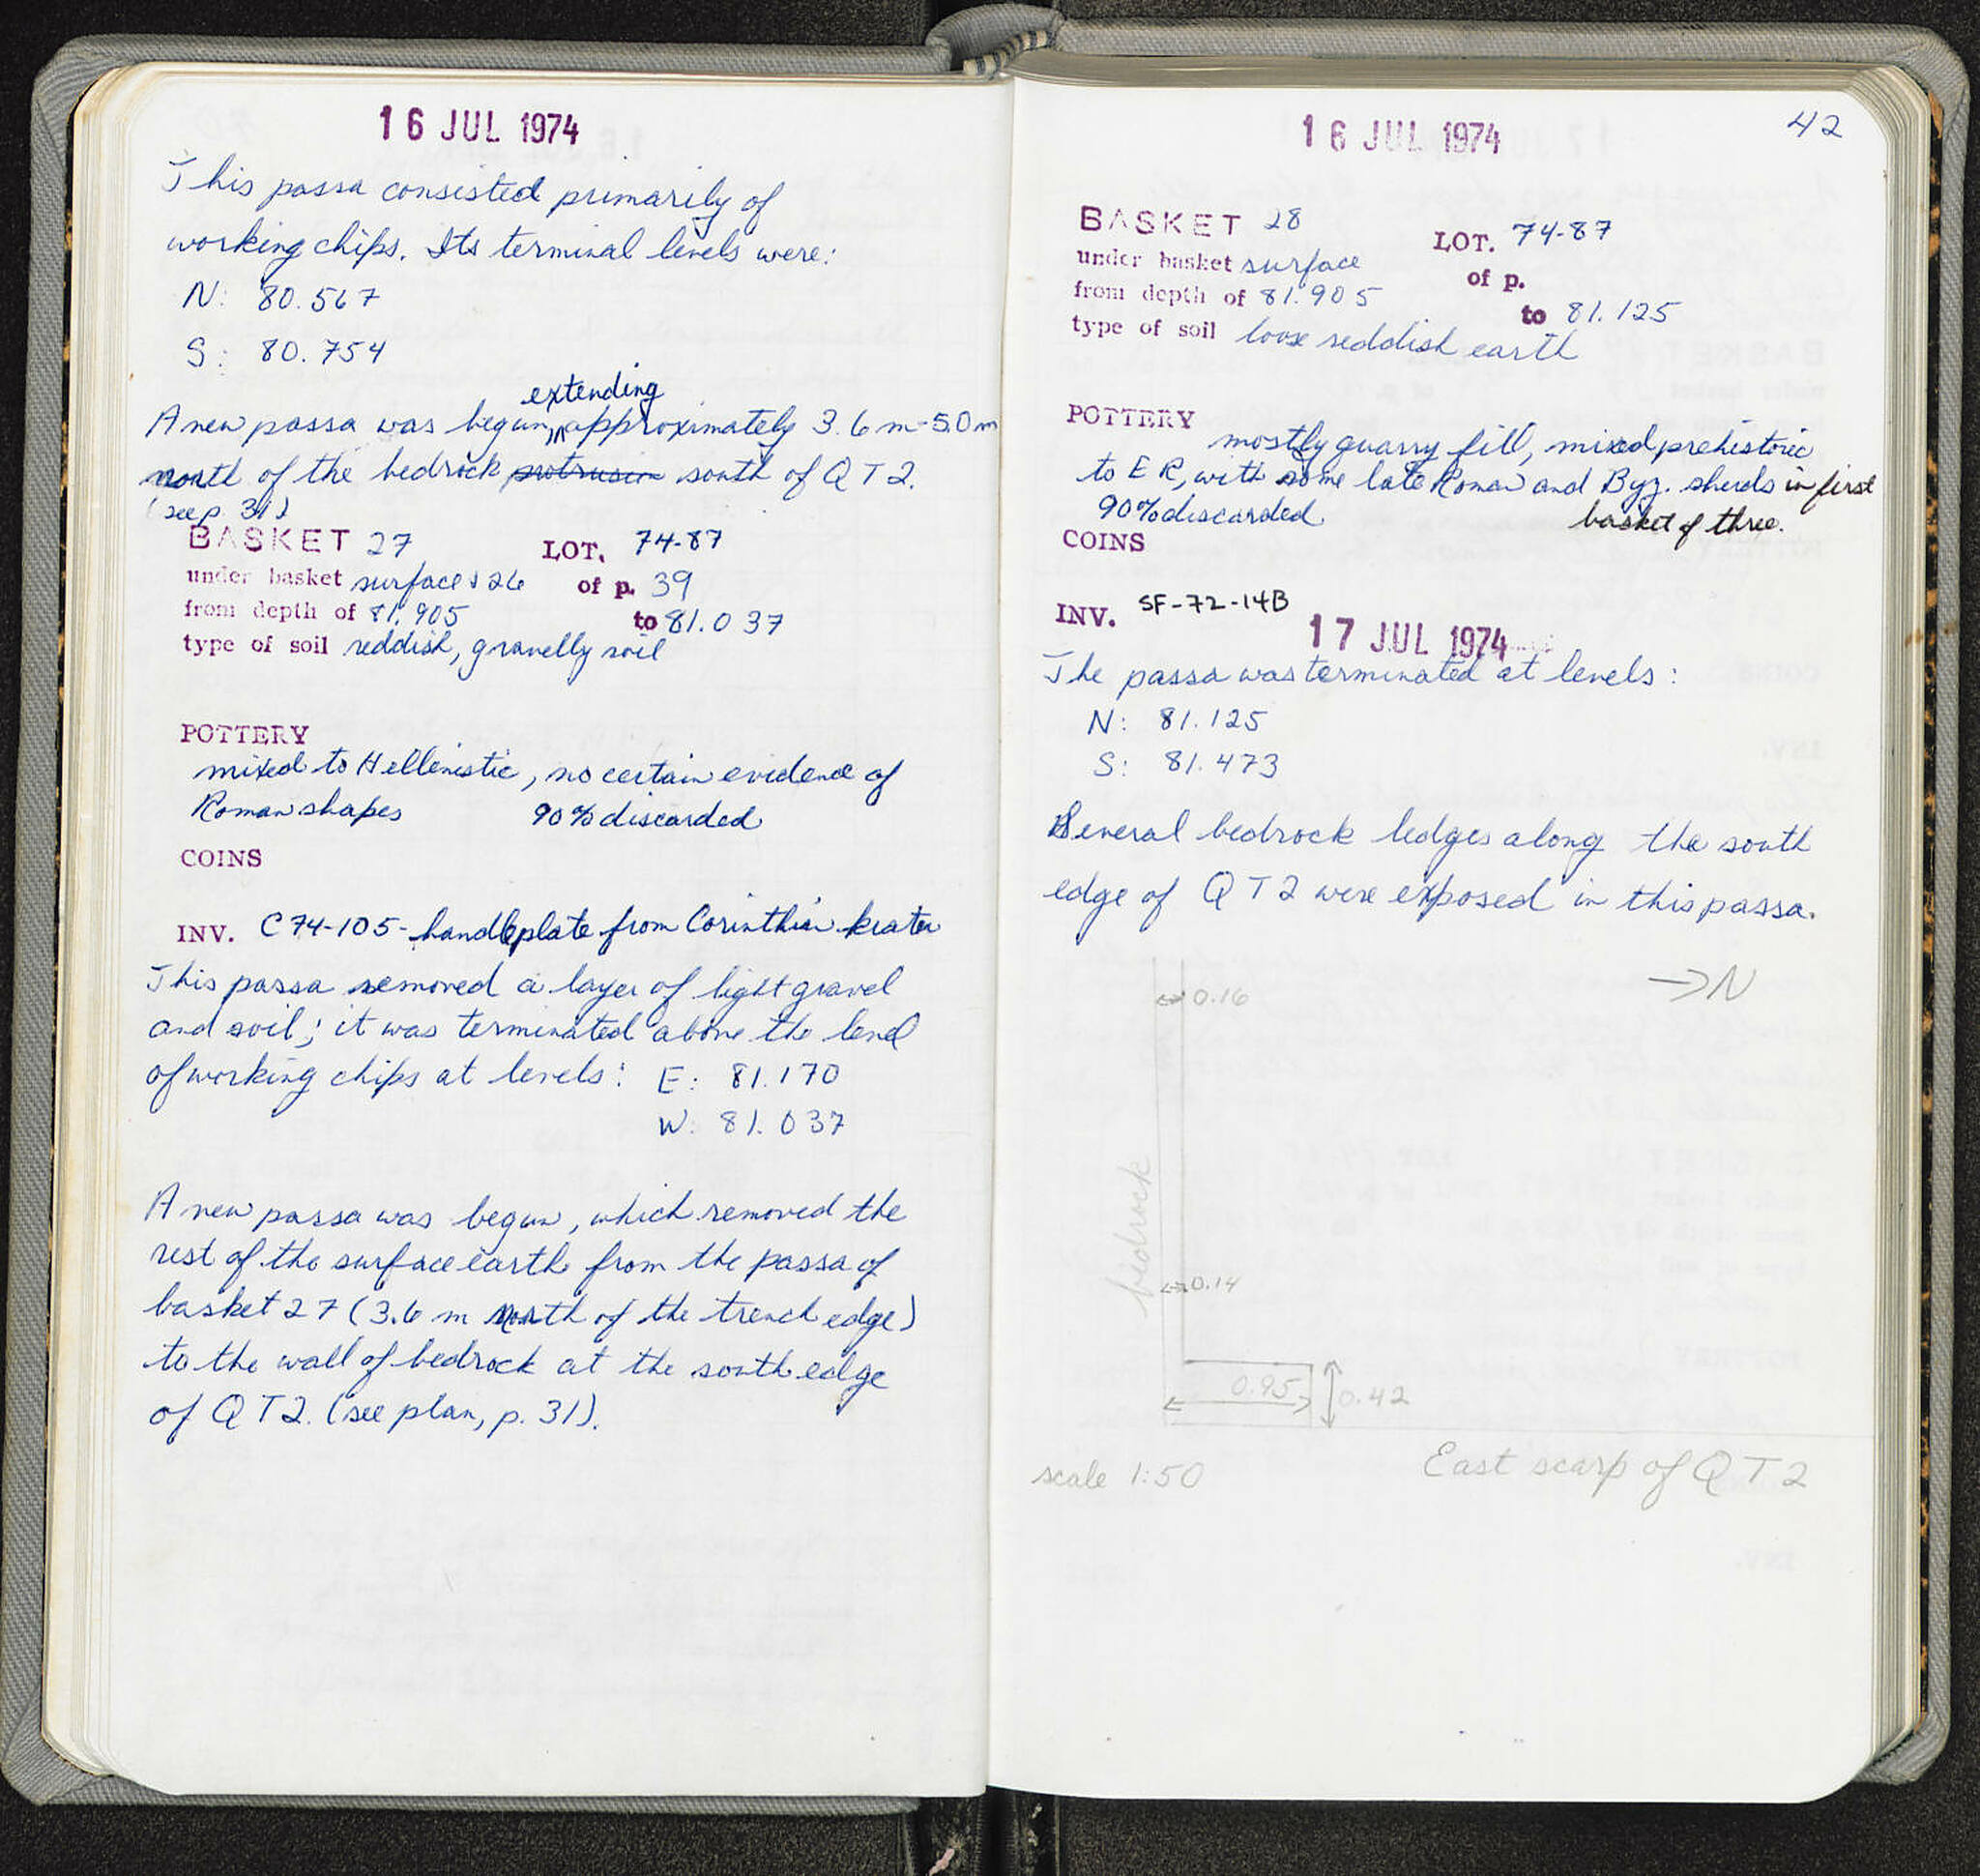 16 JUL 1974
This passa consisted primarily of
working chips. Its terminal levels were:
N: 80.567
S: 80.754
extending
A new passa was begun, approximately 3.6 m-5.0m
north of the bedrock protrusion south of QT2.
(see p. 31)
BASKET 27 LOT. 74-87
under basket surface & 26 of p. 39
from depth of 81.905 to 81.037
type of soil reddish, gravelly soil
POTTERY
mixed to Hellenistic, no certain evidence of
Roman shapes 90% discarded
COINS
INV. C74-105- handleplate from Corinthian krater
This passa removed a layer of light gravel
and soil; it was terminated above the level
of working chips at levels: E: 81.170
W: 81.037
A new passa was begun, which removed the
rest of the surface earth from the passa of
basket 27 (3.6 m north of the trench edge)
to the wall of bedrock at the south edge
of QT2. (see plan, p. 31).
16 JUL 1974
42
BASKET 28 LOT. 74-87
under basket surface of p.
from depth of 81.905 to 81.125
type of soil loose reddish earth
POTTERY
mostly quarry fill, mixed prehistoric
to ER, with some late Roman and Byz. sherds in first
90% discarded basket of three.
COINS
INV. SF-72-14B
17 JUL 1974
The passa was terminated at levels:
N: 81.125
S: 81.473
Several bedrock ledges along the south
edge of QT2 were exposed in this passa.
→N
0.16
bedrock
0.14
0.95
0.42
scale 1:50
East scarp of QT2